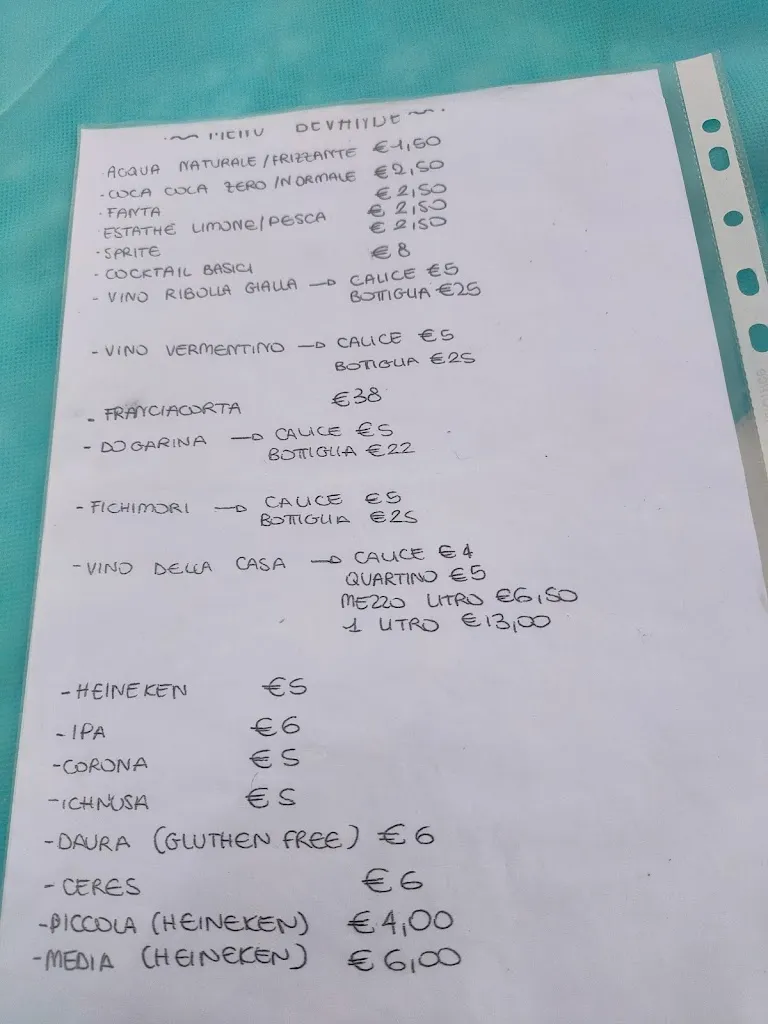 ~ MENU BEVANDE ~.
· ACQUA NATURALE/FRIZZANTE €1,50
· COCA COLA ZERO/NORMALE €2,50
· FANTA €2,50
ESTATHE LIMONE/PESCA € 2,50
· SPRITE € 2,50
· COCKTAIL BASICI €8
- VINO RIBOLLA GIALLA → CALICE €5
BOTTIGLIA €25
- VINO VERMENTINO → CALICE €5
BOTIGLIA €25
- FRANCIACORTA €38
- DOGARINA → CALICE €5
BOTTIGLIA €22
- FICHIMORI → CALICE €5
BOTTIGLIA €25
- VINO DELLA CASA → CALICE €4
QUARTINO €5
MEZZO LITRO €6,50
1 LITRO €13,00
- HEINEKEN €5
- IPA €6
- CORONA €5
- ICHNUSA €5
- DAURA (GLUTHEN FREE) €6
- CERES €6
- PICCOLA (HEINEKEN) €4,00
- MEDIA (HEINEKEN) €6,00